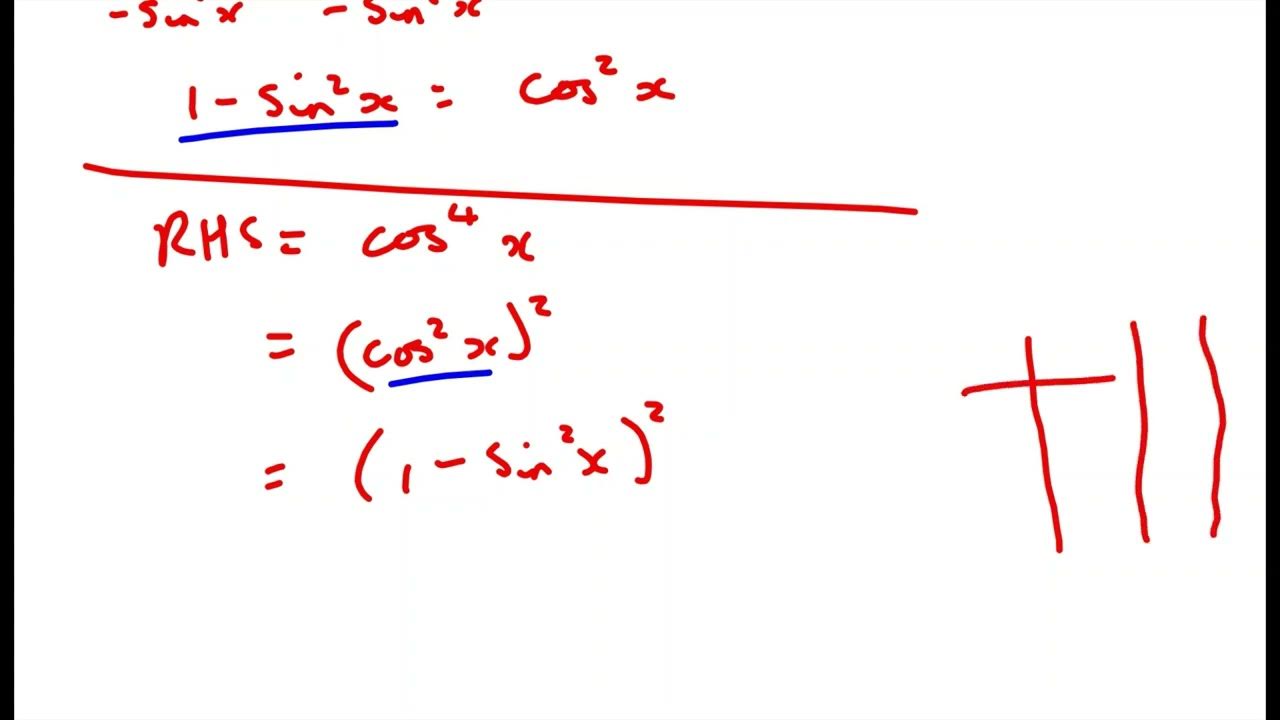 -sin²x -sin²x
1 - sin²x = cos²x
RHS = cos⁴x
= (cos²x)²
= (1 - sin²x)²